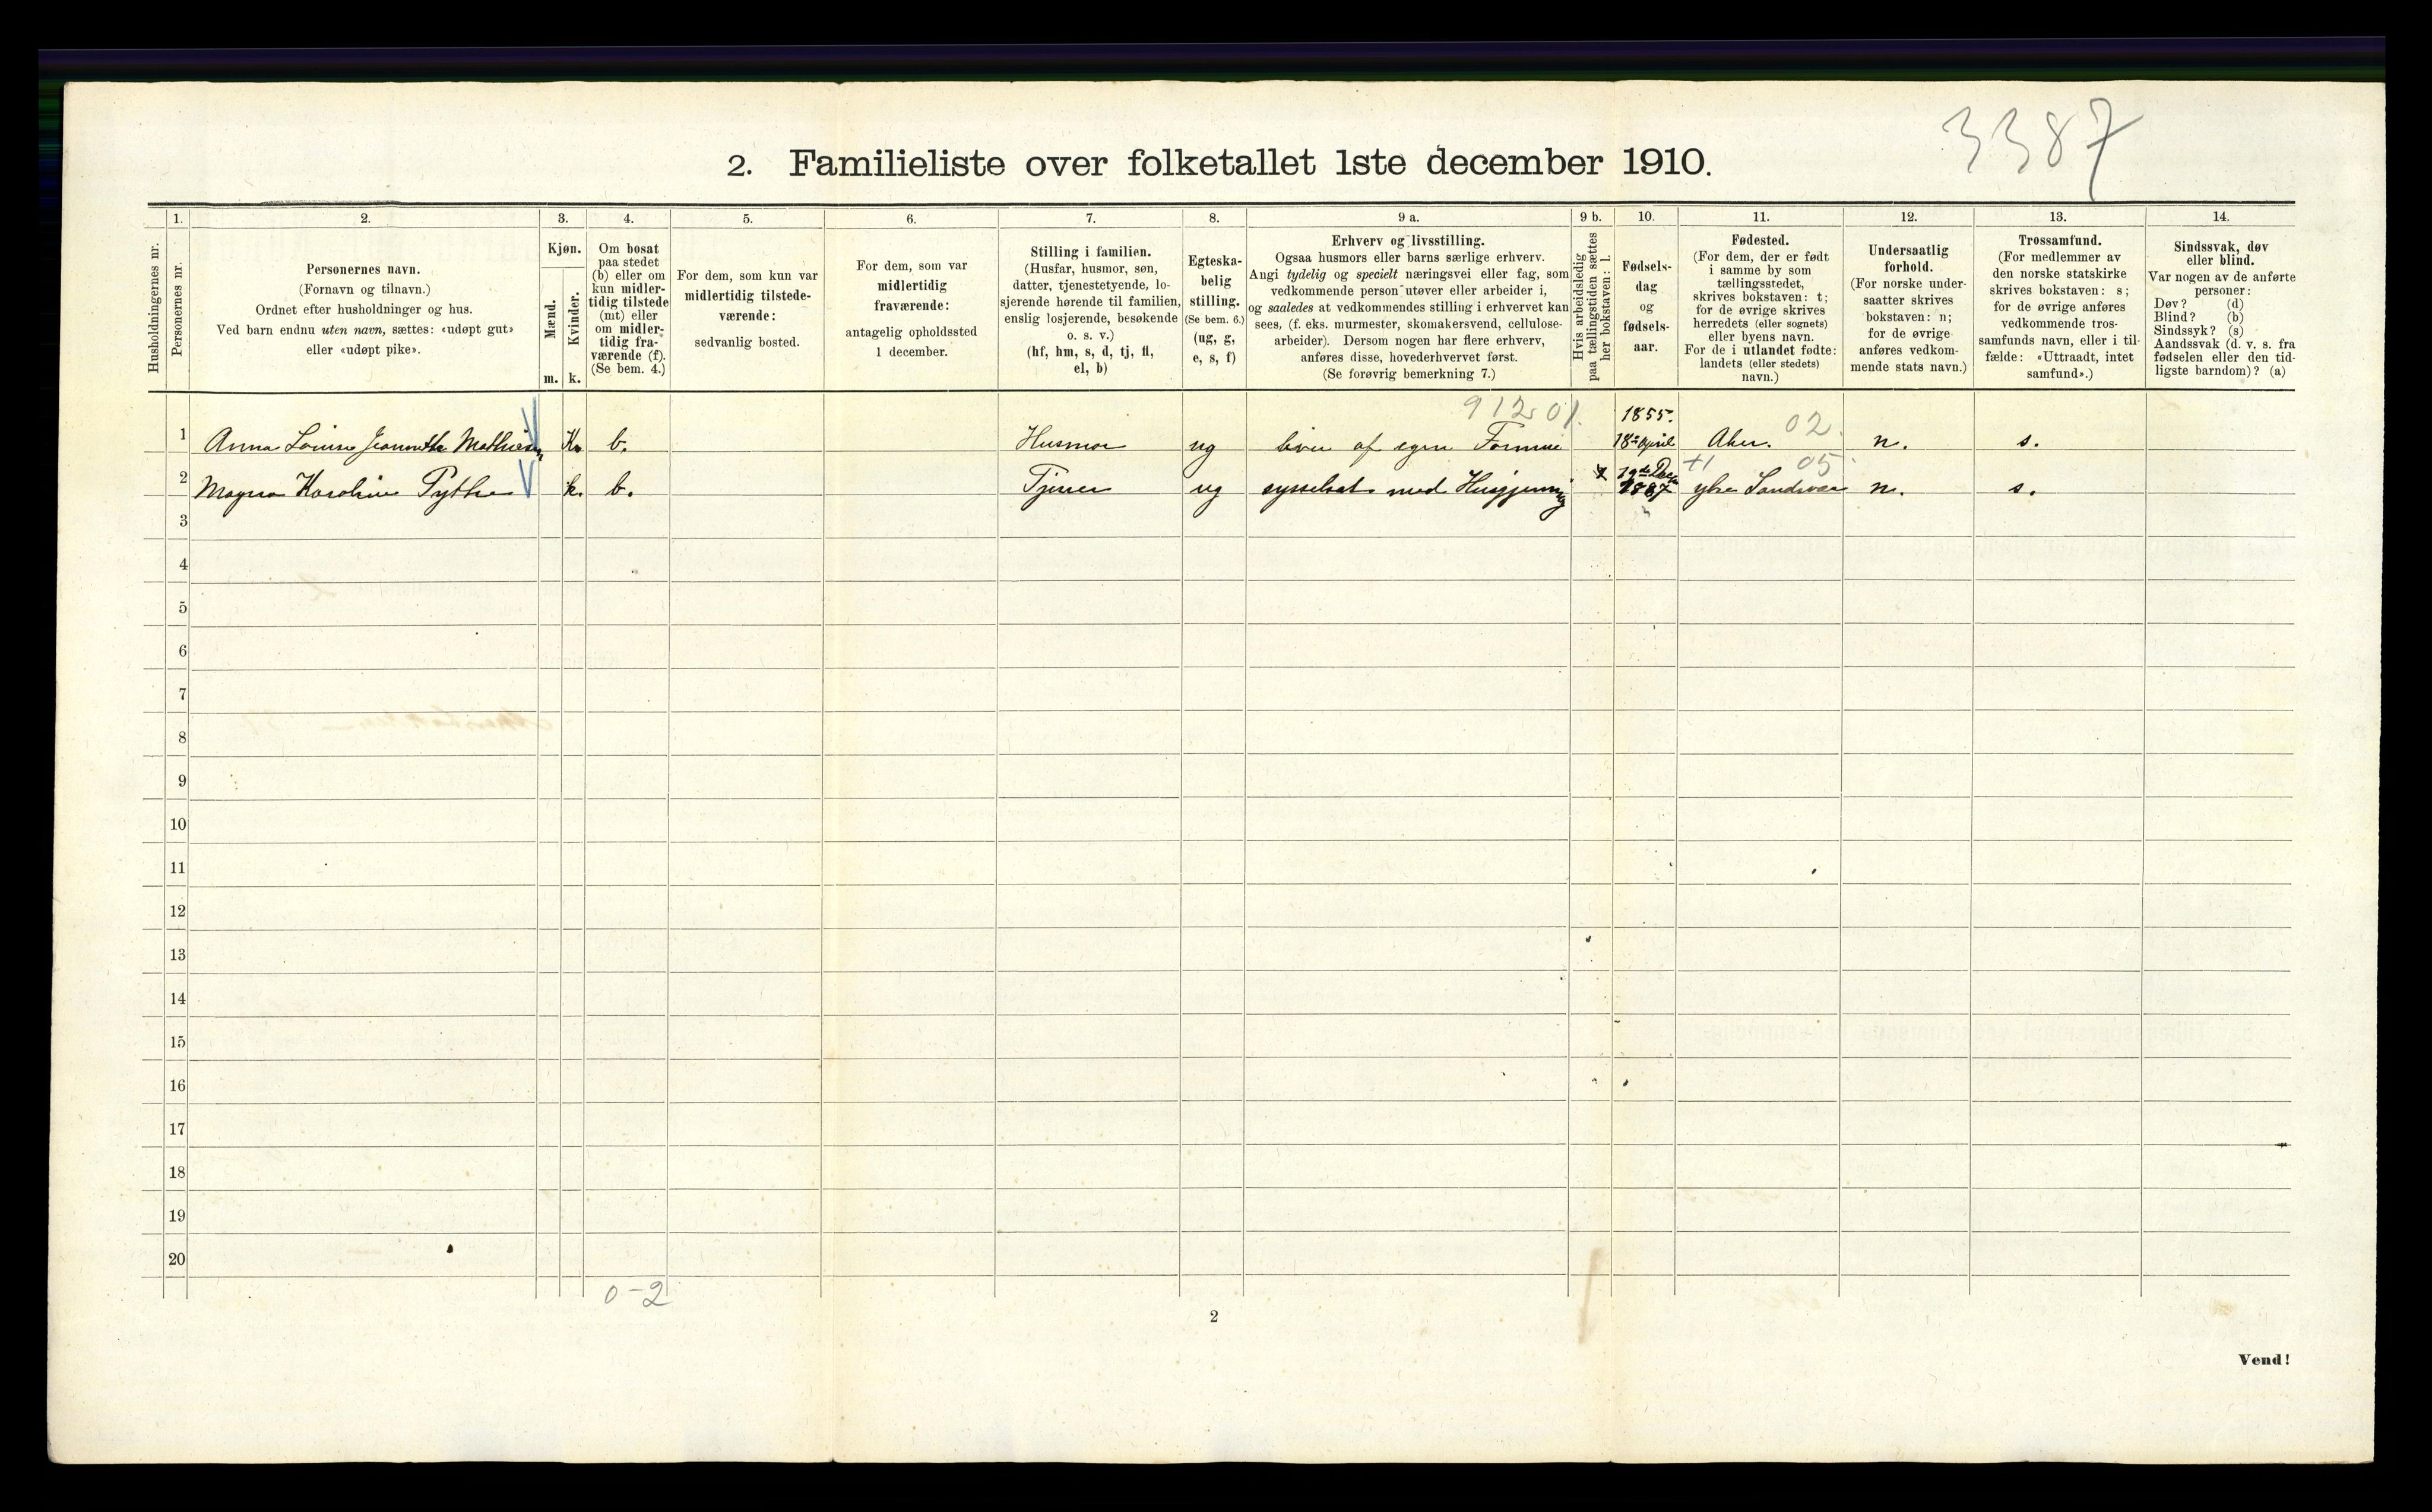 3387
2. Familieliste over folketallet 1ste december 1910.
Husholdningernes nr.
1.
Personernes nr.
2.
Personernes navn.
(Fornavn og tilnavn.)
Ordnet efter husholdninger og hus.
Ved barn endnu uten navn, sættes: «udøpt gut»
eller «udøpt pike».
3.
Kjøn.
Mænd.
Kvinder.
m. k.
4.
Om bosat
paa stedet
(b) eller om
kun midler-
tidig tilstede
(mt) eller
om midler-
tidig fra-
værende (f).
(Se bem. 4.)
5.
For dem, som kun var
midlertidig tilstede-
værende:
sedvanlig bosted.
6.
For dem, som var
midlertidig
fraværende:
antagelig opholdssted
1 december.
7.
Stilling i familien.
(Husfar, husmor, søn,
datter, tjenestetyende, lo-
sjerende hørende til familien,
enslig losjerende, besøkende
o. s. v.)
(hf, hm, s, d, tj, fl,
el, b)
8.
Egteska-
belig
stilling.
(Se bem. 6.)
(ug, g,
e, s, f)
9 a.
Erhverv og livsstilling.
Ogsaa husmors eller barns særlige erhverv.
Angi tydelig og specielt næringsvei eller fag, som
vedkommende person utøver eller arbeider i,
og saaledes at vedkommendes stilling i erhvervet kan
sees, (f. eks. murmester, skomakersvend, cellulose-
arbeider). Dersom nogen har flere erhverv,
anføres disse, hovederhvervet først.
(Se forøvrig bemerkning 7.)
9 b.
Hvis arbeidsledig
paa tællingstiden sættes
her bokstaven: l.
10.
Fødsels-
dag
og
fødsels-
aar.
11.
Fødested.
(For dem, der er født
i samme by som
tællingsstedet,
skrives bokstaven: t;
for de øvrige skrives
herredets (eller sognets)
eller byens navn.
For de i utlandet fødte:
landets (eller stedets)
navn.)
12.
Undersaatlig
forhold.
(For norske under-
saatter skrives
bokstaven: n;
for de øvrige
anføres vedkom-
mende stats navn.)
13.
Trossamfund.
(For medlemmer av
den norske statskirke
skrives bokstaven: s;
for de øvrige anføres
vedkommende tros-
samfunds navn, eller i til-
fælde: «Uttraadt, intet
samfund».)
14.
Sindssvak, døv
eller blind.
Var nogen av de anførte
personer:
Døv? (d)
Blind? (b)
Sindssyk? (s)
Aandssvak (d. v. s. fra
fødselen eller den tid-
ligste barndom)? (a)
912.01. 1855. 02
1 Anna Louise Jeannette Mathiesen K. b. Husmor ug lever af egen Formue 18de April Aker. n. s.
19de Decm 05
2 Magna Karoline Pythe k. b. Tjener ug sysselsat med Husgjerning 1887 ytre Sandsvær n. s.
3
4
5
6
7
8
9
10
11
12
13
14
15
16
17
18
19
20
0-2
2
Vend!